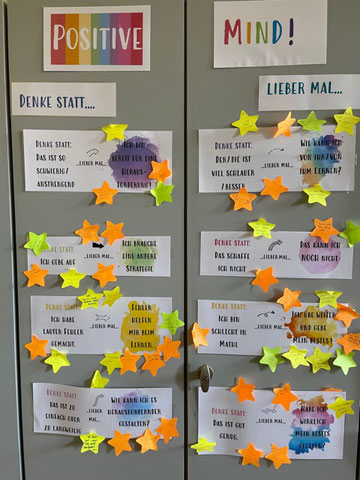 POSITIVE
MIND!
DENKE STATT....
LIEBER MAL...
DENKE STATT:
DAS IST SO
SCHWIERIG/
ANSTRENGEND
...LIEBER MAL...
ICH BIN
BEREIT FÜR EINE
HERAUS-
FORDERUNG!
DENKE STATT:
DER/DIE IST
VIEL SCHLAUER
/BESSER
...LIEBER MAL...
WIE KANN ICH
VON IHR/VON
IHM LERNEN?
DENKE STATT:
ICH GEBE AUF
...LIEBER MAL...
ICH BRAUCHE
EINE ANDERE
STRATEGIE
DENKE STATT:
DAS SCHAFFE
ICH NICHT
...LIEBER MAL...
DAS KANN ICH
NOCH NICHT
DENKE STATT:
ICH HABE
LAUTER FEHLER
GEMACHT.
...LIEBER MAL...
FEHLER
HELFEN
MIR BEIM
LERNEN.
DENKE STATT:
ICH BIN
SCHLECHT IN
MATHE
...LIEBER MAL...
ICH ÜBE WEITER
UND GEBE
MEIN BESTES!
DENKE STATT:
DAS IST ZU
EINFACH ODER
ZU LANGWEILIG
...LIEBER MAL...
WIE KANN ICH ES
HERAUSFORDERNDER
GESTALTEN?
DENKE STATT:
DAS IST GUT
GENUG.
...LIEBER MAL...
HABE ICH
WIRKLICH
MEIN BESTES
GEGEBEN?